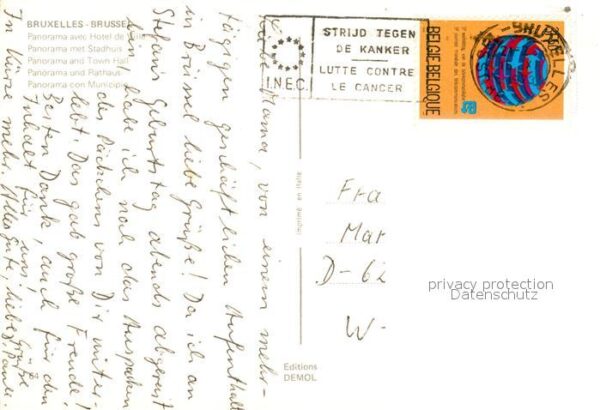 BRUXELLES - BRUSSEL
Panorama avec Hotel de Ville
Panorama met Stadhuis
Panorama and Town Hall
Panorama und Rathaus
Panorama con Municipio
Liebe Mama, von einem mehr-
tägigen geschäftlichen Aufenthalt
in Brüssel liebe Grüße! Da ich an
Stefans Geburtstag abends abgereist
bin, habe ich noch das Auspacken
des Päckchens von Dir miter-
lebt. Das gab große Freude!
Besten Dank, auch für den
Inhalt für uns!
In Kürze mehr. Alles Gute, liebe Grüße
I.N.E.C.
STRIJD TEGEN
DE KANKER
LUTTE CONTRE
LE CANCER
BELGIE-BELGIQUE
imprimé en Italie
Fra
Mar
D-62
W-
Editions
DEMOL
privacy protection
Datenschutz